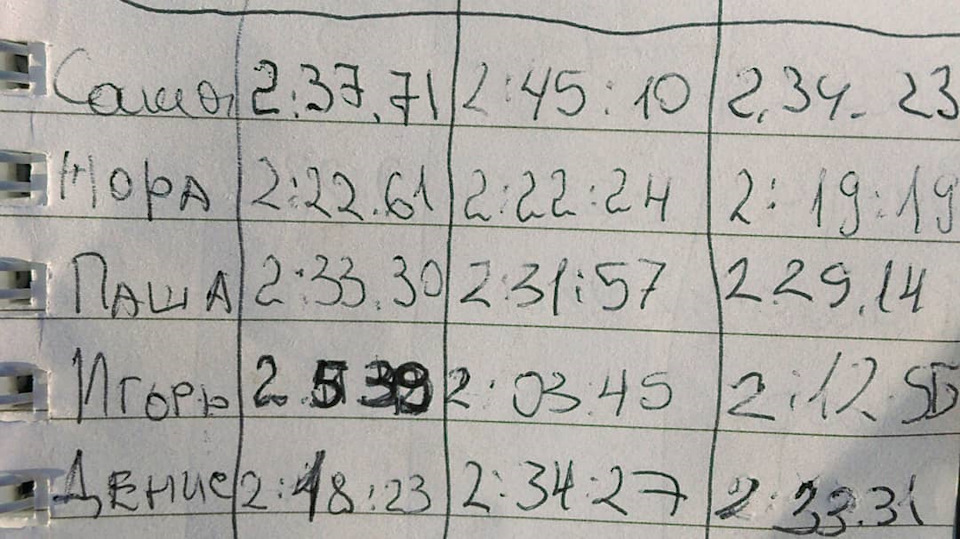 Саша 2:37.71 2:45:10 2.34. 23
Нора 2:22.61 2:22:24 2: 19:19
ПАША 2:33.30 2:31:57 2.29.14
Игорь 2 2:03.45 2:12.
ДЕНИС 2:48:23 2:34:27 2:33.31